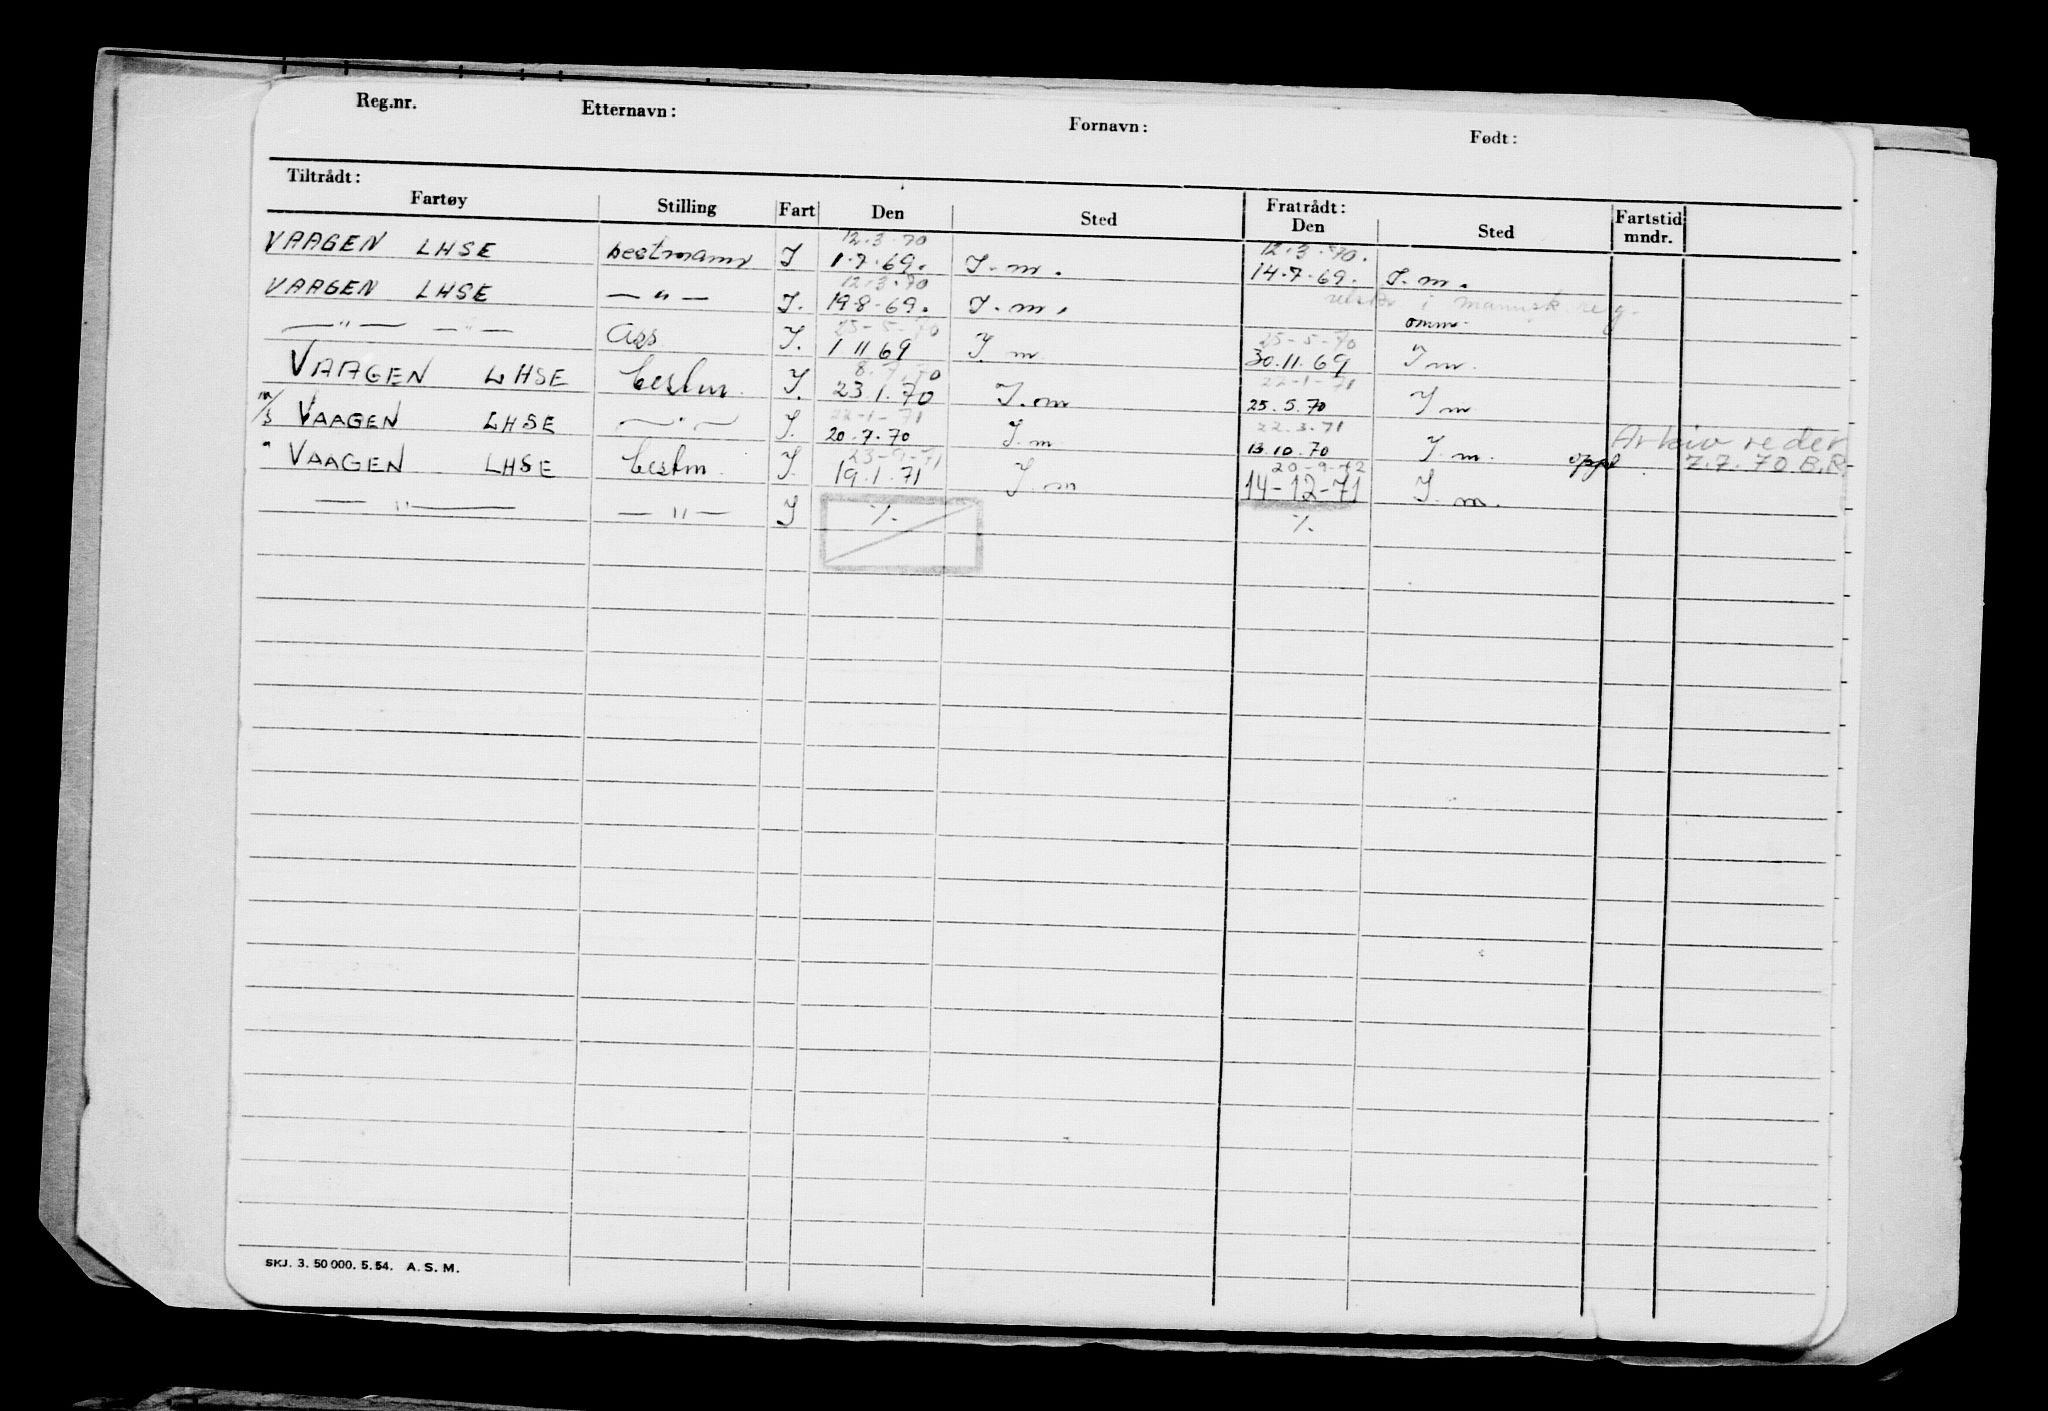 Reg.nr. Etternavn: Fornavn: Født:
Tiltrådt: Fratrådt:
Fartøy Stilling Fart Den Sted Den Sted Fartstid mndr.
12.3.70 12.3.70.
VAAGEN LHSE bestmann I 1.7.69. I.m. 14.7.69. I.m.
12.3.70 i manusk. reg.
VAAGEN LHSE —"— I. 19.8.69. I.m. omm.
25-5-70 25-5-70
—"— —"— Ass I. 1 11 69 I.m. 30.11.69 I m.
8.7.70 22-1-71
VAAGEN LHSE bestm. I. 23.1.70 I.om 25.5.70 I m
22-1-71 22.3.71
m/s VAAGEN LHSE —"— I. 20.7.70 I.m 13.10.70 I.m. Arkiv reder
23-9-71 20-9-72
" VAAGEN LHSE bestm. I. 19.1.71 I.m 14-12-71 I.m. oppl 7.7.70 B.R.
—"— —"— I ./. ./.
SKJ. 3. 50 000. 5. 54. A. S. M.